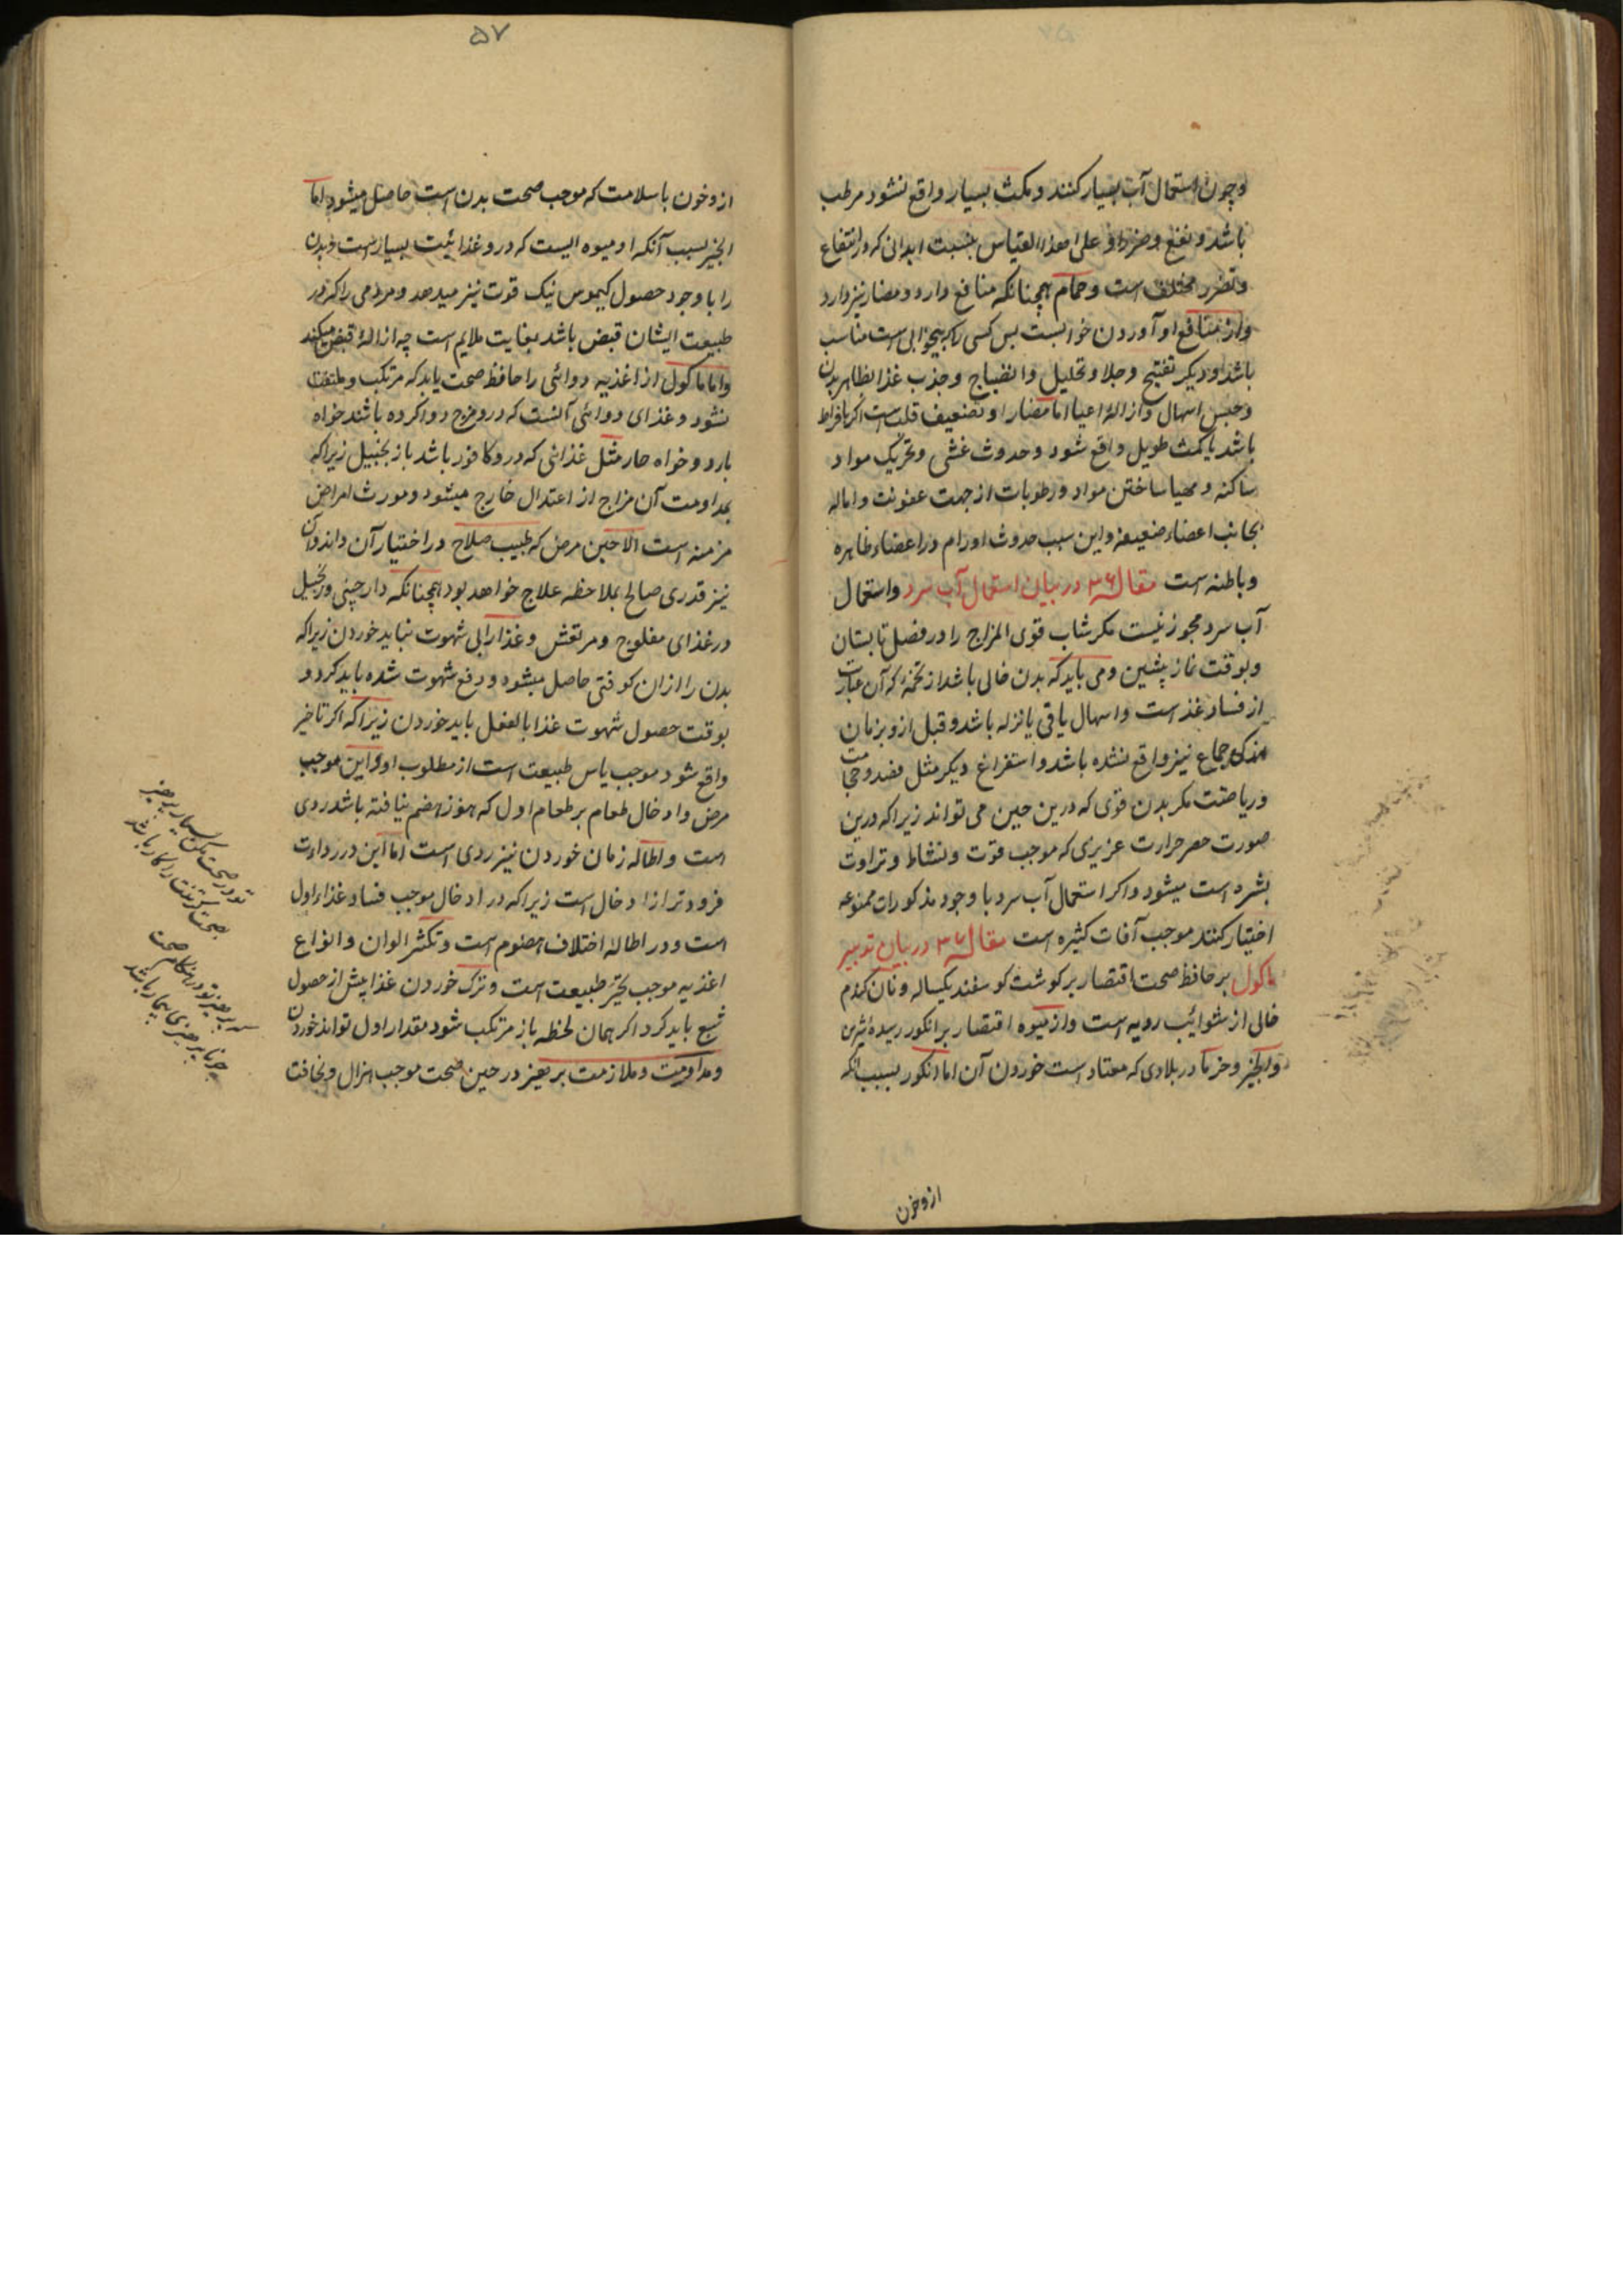 وچون استعمال آب بسیار کنند و مکث بسیار واقع نشود مرطب
باشد و نفع و ضرر او علی هذا القیاس بنسبت ابدانی که در انتفاع
و تضرر مختلف است و حمام همچنانکه منافع دارد و مضار نیز دارد
و از منافع او آوردن خوابست پس کسی را که بیخوابی است مناسب
باشد و دیکر تفتیح و جلا و تحلیل و انضاج و جذب غذا بظاهر بدن
و حبس اسهال و ازالۀ اعیا اما مضار او تضعیف قلب است اکر بافراط
باشد یا مکث طویل واقع شود و حدوث غشی و تحریک مواد
ساکنه و مهیا ساختن مواد و رطوبات از جهت عفونت و اماله
بجانب اعضاء ضعیفه و این سبب حدوث اورام در اعضاء ظاهره
و باطنه است مقاله ۳۶ در بیان استعمال آب سرد و استعمال
آب سرد مجوز نیست مکر شاب قوی المزاج را در فصل تابستان
و بوقت نماز پیشین و می باید که بدن خالی باشد از تخمه که آن عبارت
از فساد غذ است و اسهال یا قی یا نزله باشد و قبل ازو بزمان
اندکی جماع نیز واقع نشده باشد و استفراغ دیکر مثل فصد و حجامت
و ریاضت مکر بدن قوی که درین حین می تواند زیرا که درین
صورت حصر حرارت غریزی که موجب قوت و نشاط و تراوت
بشره است میشود و اکر استعمال آب سرد با وجود مذکورات ممنوعه
اختیار کنند موجب آفات کثیره است مقاله ۳۷ در بیان تدبیر
ماکول بر حافظ صحت اقتصار بر کوشت کوسفند یکساله و نان کندم
خالی از شوائب رویه است و از میوه اقتصار بر انکور رسیده شیرین
و انجیر و خرما در بلادی که معتاد است خوردن آن اما انکور بسبب آنکه
ازو خون
۵۷
ازو خون با سلامت که موجب صحت بدن است حاصل میشود اما
انجیر بسبب آنکه او میوه ایست که درو غذائیت بسیار است و بدن
را با وجود حصول کیموس نیک قوت نیز میدهد و مردمی را که در
طبیعت ایشان قبض باشد بغایت ملایم است چه ازالۀ قبض میکند
و اما ماکول از اغذیه دوائی را حافظ صحت باید که مرتکب و ملتفت
نشود و غذای دوائی آنست که درو مزج دوا کرده باشند خواه
بارد و خواه حار مثل غذائی که درو کافور باشد یا زنجبیل زیرا که
بمداومت آن مزاج از اعتدال خارج میشود و مورث امراض
مزمنه است الا حین مرض که طبیب صلاح در اختیار آن داند و آن
نیز قدری صالح بملاحظه علاج خواهد بود همچنانکه دارچینی و زنجبیل
در غذای مفلوج و مرتعش و غذا را بی شهوت نباید خوردن زیرا که
بدن را ازان کوفتی حاصل میشود و دفع شهوت شده باید کرد و
بوقت حصول شهوت غذا بالفعل باید خوردن زیرا که اکر تاخیر
واقع شود موجب یاس طبیعت است از مطلوب او و این موجب
مرض و ادخال طعام بر طعام اول که هنوز هضم نیافته باشد ردی
است و اطاله زمان خوردن نیز ردی است اما این در رداءت
فرودتر از ادخال است زیرا که در ادخال موجب فساد غذاء اول
است و در اطاله اختلاف هضوم است و تکثر الوان و انواع
اغذیه موجب تحیّر طبیعت است و ترک خوردن غذا پیش از حصول
شبع باید کرد اکر همان لحظه باز مرتکب شود مقدار اول تواند خوردن
و مداومت و ملازمت پرهیز در حین صحت موجب هزال و نحافت
تو در صحت مکن بسیار پرهیز
پرهیز تو در هنکام صحت